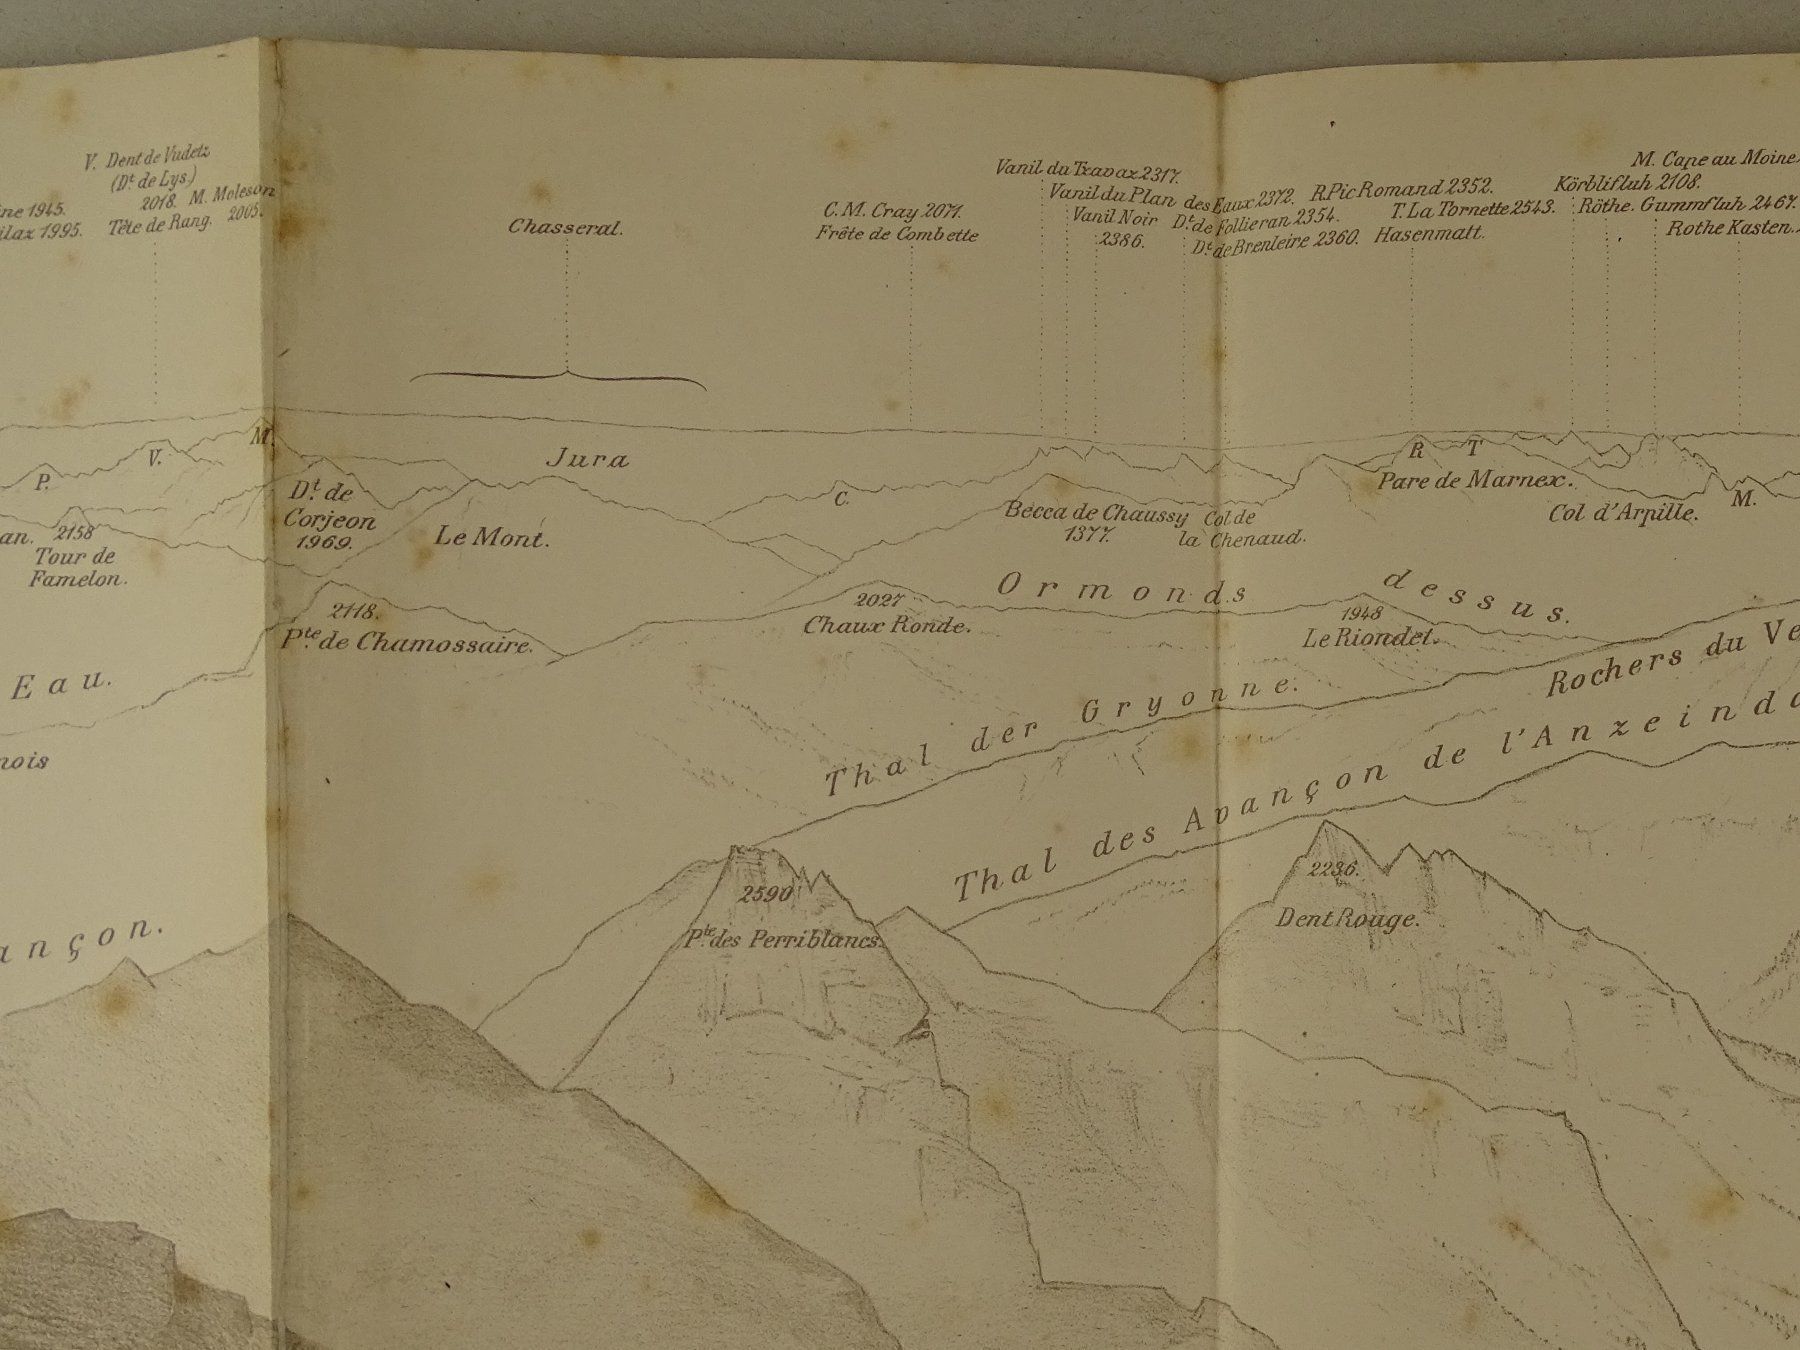 V. Dent de Vudetz
(Dt. de Lys.)
2018. M. Moleson
1945.
1995.
Tête de Rang. 2005.
Chasseral.
C.M. Cray 2071.
Frête de Combette
Vanil du Tzavaz 2317.
Vanil du Plan des Eaux 2372.
Vanil Noir
2386.
Dt. de Follieran 2354.
Dt. de Brenleire 2360.
R. Pic Romand 2352.
T. La Tornette 2543.
Hasenmatt.
M. Cape au Moine
Körblifluh 2108.
Röthe. Gummfluh 2467.
Rothe Kasten.
M.
V.
P.
Jura
C.
R
T
M.
Dt. de
Corjeon
1969.
Le Mont.
Becca de Chaussy
1377.
Col de
la Chenaud.
Pare de Marnex.
Col d'Arpille.
an. 2158
Tour de
Famelon.
2118.
Pte. de Chamossaire.
2027
Chaux Ronde.
Ormonds dessus.
1948
Le Riondet.
Eau.
nois
Thal der Gryonne.
Rochers du Ve
Thal des Avançon de l'Anzeinda
ançon.
2590
Pte. des Perriblancs.
2236.
Dent Rouge.